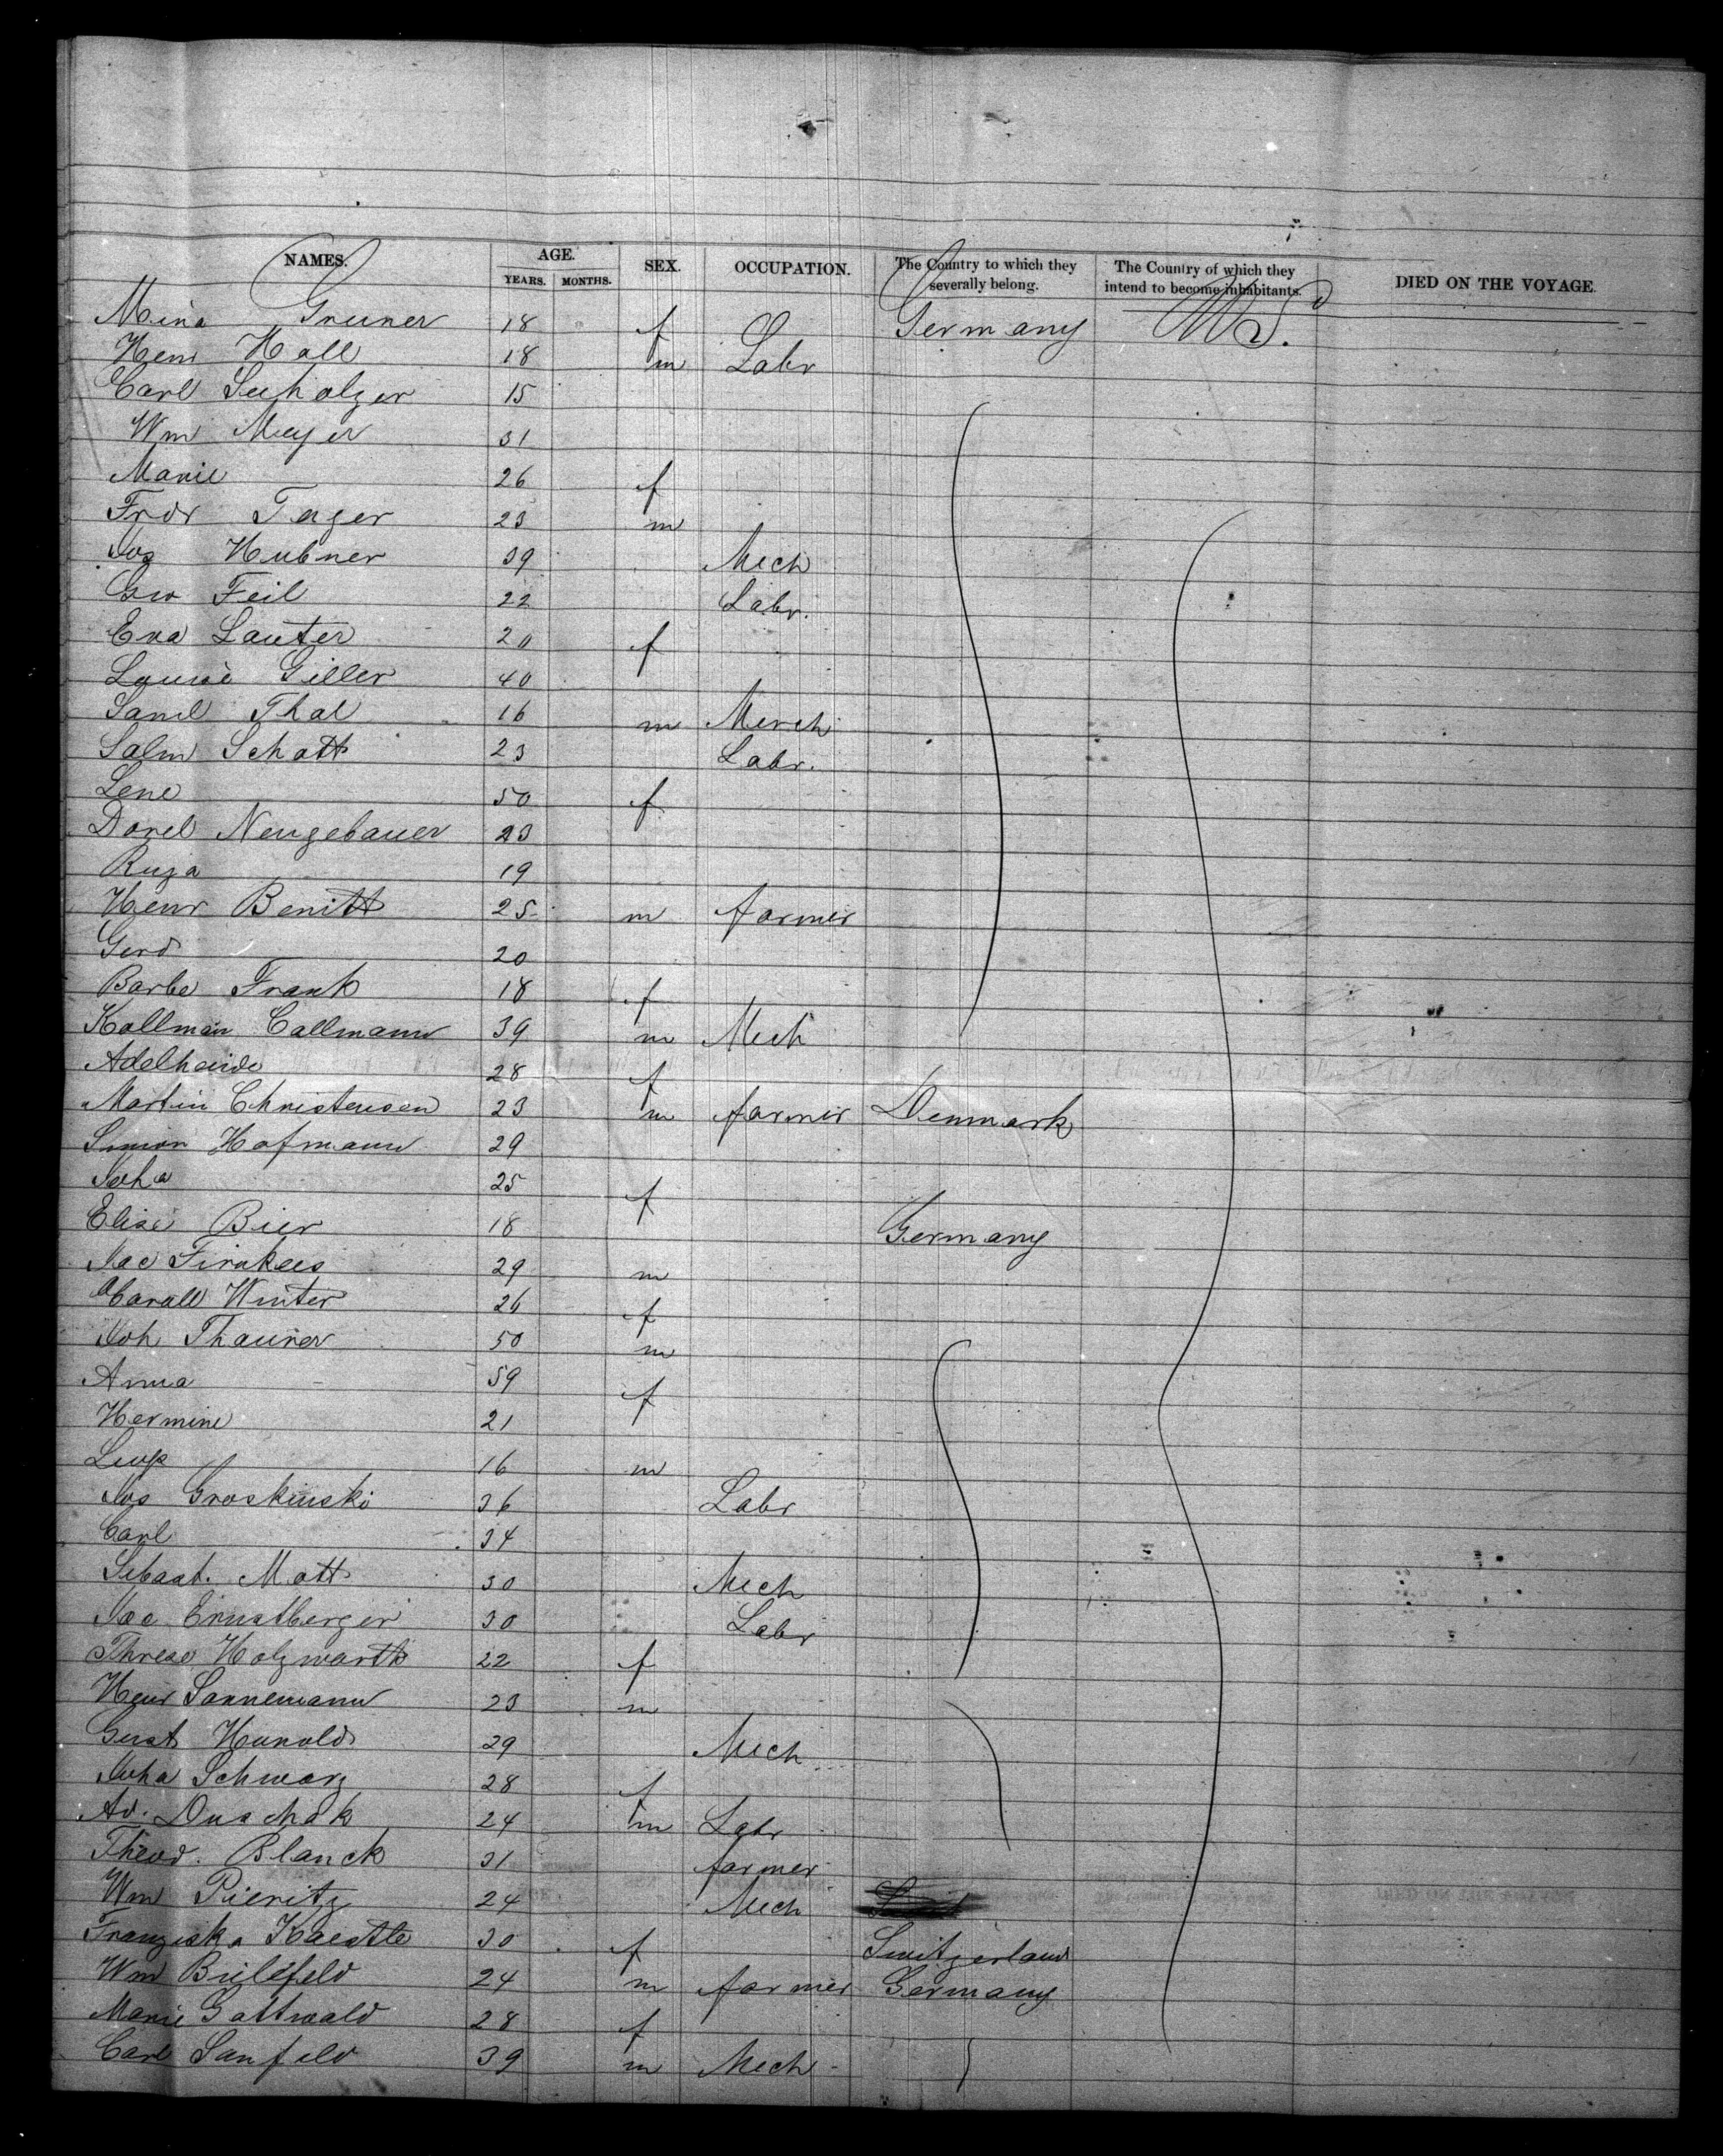 NAMES. AGE. SEX. OCCUPATION. The Country to which they severally belong. The Country of which they intend to become inhabitants. DIED ON THE VOYAGE.
YEARS. MONTHS.
Mina Gruner 18 f Germany U.S.
Henr Hall 18 m Labr
Carl Seeholzer 15
Wm Meyer 31
Marie 26 f
Frdr Tager 23 m
Jos Hubner 39 Mech
Geo Feil 22 Labr.
Eva Lauter 20 f
Louise Giller 40
Saml Thal 16 m Merch
Salm Schott 23 Labr.
Lene 50 f
Dorel Neugebauer 23
Ruza 19
Henr Benitt 25 m farmer
Gerd 20
Barbe Frank 18 f
Kallman Callmann 39 m Mech
Adelheide 28 f
Martin Christensen 23 m farmer Denmark
Simon Hofmann 29
Joha 25 f
Elise Bier 18 Germany
Jac Firnkees 29 m
Winter 26 f
Joh Thaurer 50 m
Anna 59 f
Hermine 21
Leop 16 m
Jos Groskinski 36 Labr
Carl 34
Sebast. Mott 30 Mech
Jac Ernstberger 30 Labr
Threse Holzwarth 22 f
Henr Sannemann 23 m
Gust Hunold 29 Mech
Joha Schwarz 28 f
Ad. Duschak 24 m Labr
Theod. Blanck 31 farmer
Wm Pieritz 24 Mech
Franziska Kaestle 30 f Switzerland
Wm Bielefeld 24 m farmer Germany
Marie Gottwald 28 f
Carl Sanfeld 39 m Mech